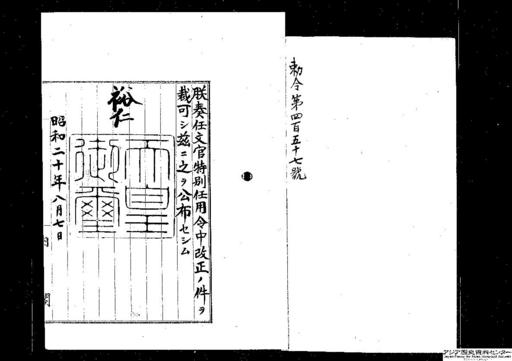 勅令第四百五十七號
朕奏任文官特別任用令中改正ノ件ヲ
裁可シ玆ニ之ヲ公布セシム
裕仁
天皇
御璽
昭和二十年八月七日
内閣
アジア歴史資料センター
Japan Center for Asian Historical Records